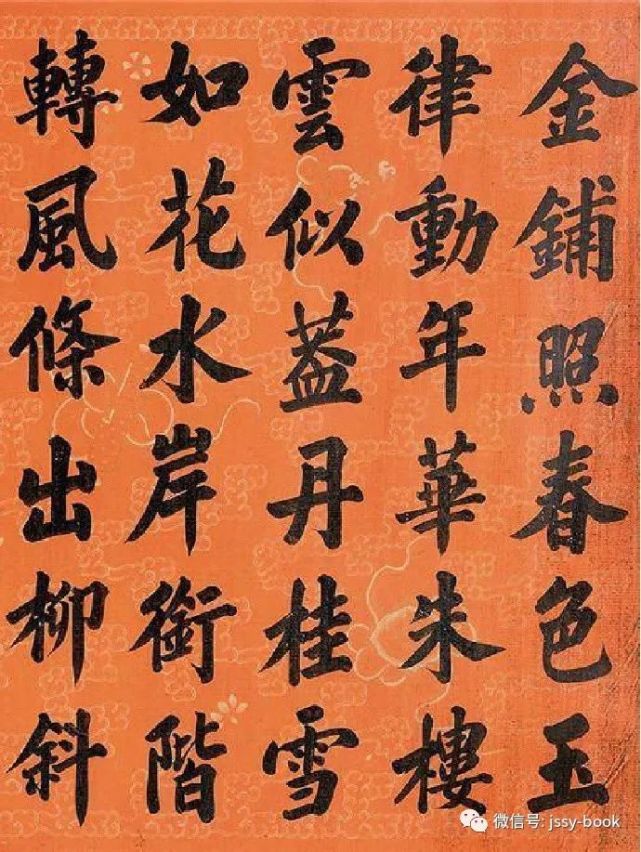 金鋪照春色玉
律動年華朱樓
雲似葢丹桂雪
如花水岸銜階
轉風條出柳斜
微信号: jssy-book